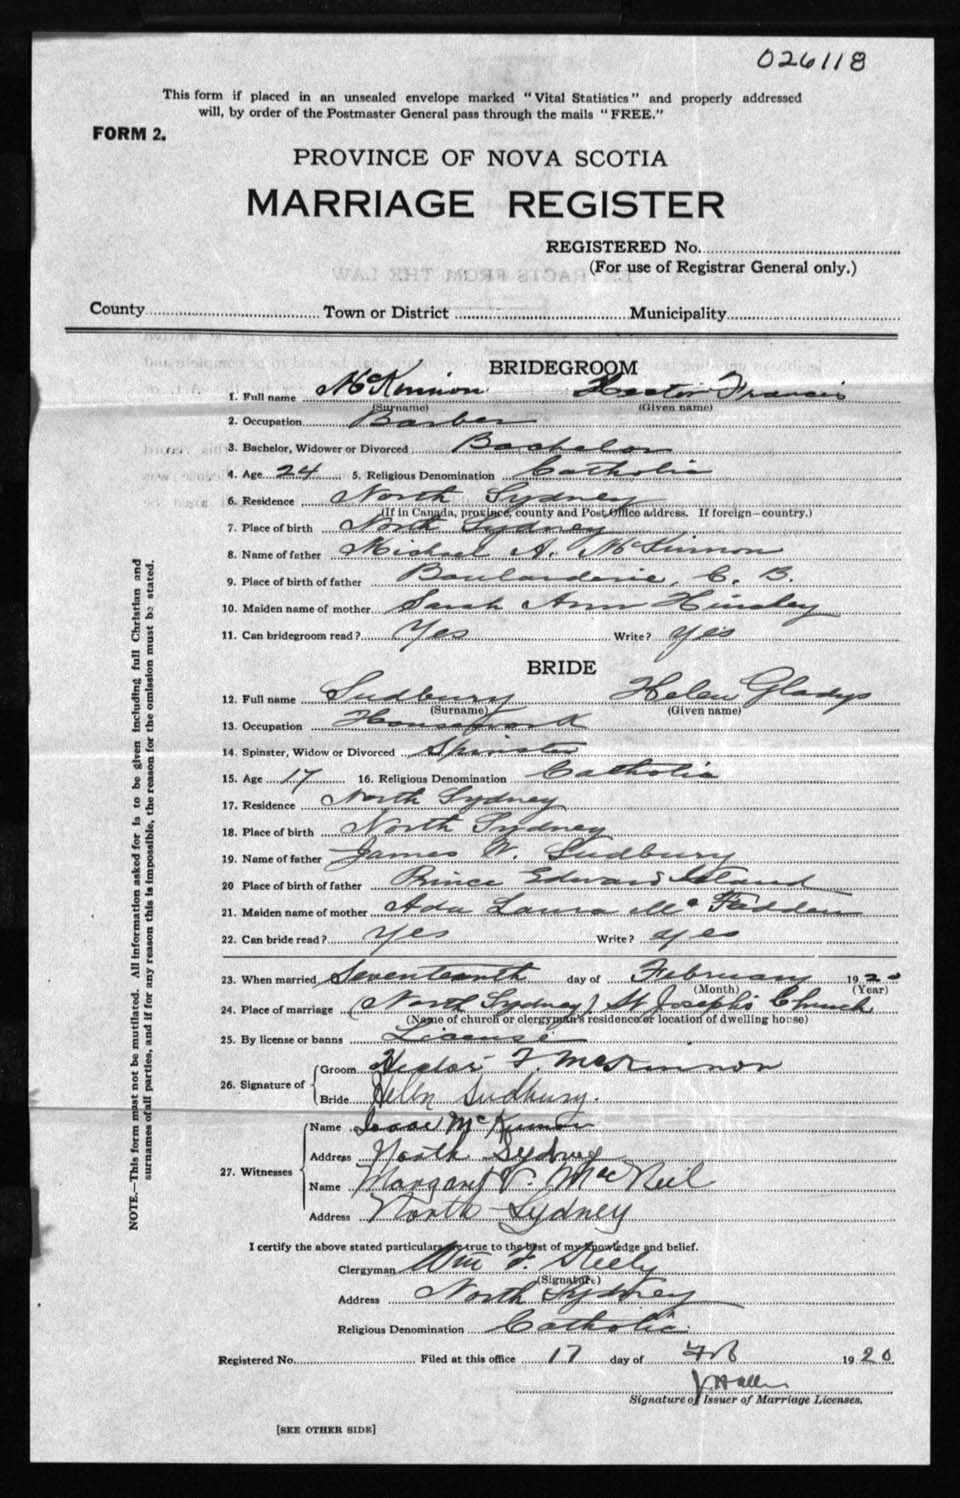 026118
This form if placed in an unsealed envelope marked "Vital Statistics" and properly addressed
will, by order of the Postmaster General pass through the mails "FREE."
FORM 2.
PROVINCE OF NOVA SCOTIA
MARRIAGE REGISTER
REGISTERED No.
(For use of Registrar General only.)
County Town or District Municipality
BRIDEGROOM
1. Full name McKinnon Hector Francis
(Surname) (Given name)
2. Occupation Barber
3. Bachelor, Widower or Divorced Bachelor
4. Age 24 5. Religious Denomination Catholic
6. Residence North Sydney
(If in Canada, province, county and Post Office address. If foreign—country.)
7. Place of birth North Sydney
8. Name of father Michael A. McKinnon
9. Place of birth of father Boularderie, C. B.
10. Maiden name of mother Sarah Ann
11. Can bridegroom read? Yes Write? Yes
BRIDE
12. Full name Sudbury Helen Gladys
(Surname) (Given name)
13. Occupation Housework
14. Spinster, Widow or Divorced Spinster
15. Age 17 16. Religious Denomination Catholic
17. Residence North Sydney
18. Place of birth North Sydney
19. Name of father James W. Sudbury
20 Place of birth of father Prince Edward Island
21. Maiden name of mother Ada Laura McFadden
22. Can bride read? Yes Write? Yes
23. When married Seventeenth day of February 1920
(Month) (Year)
24. Place of marriage (North Sydney) St Joseph's Church
(Name of church or clergyman's residence or location of dwelling house)
25. By license or banns License
26. Signature of Groom Hector F. McKinnon
Bride Helen Sudbury.
27. Witnesses Name Isaac McKinnon
Address North Sydney
Name Margaret V. MacNeil
Address North Sydney
I certify the above stated particulars are true to the best of my knowledge and belief.
Clergyman Wm F.
(Signature)
Address North Sydney
Religious Denomination Catholic
Registered No. Filed at this office 17 day of Feb 1920
Signature of Issuer of Marriage Licenses.
[SEE OTHER SIDE]
NOTE.—This form must not be mutilated. All information asked for is to be given including full Christian and
surnames of all parties, and if for any reason this is impossible, the reason for the omission must be stated.